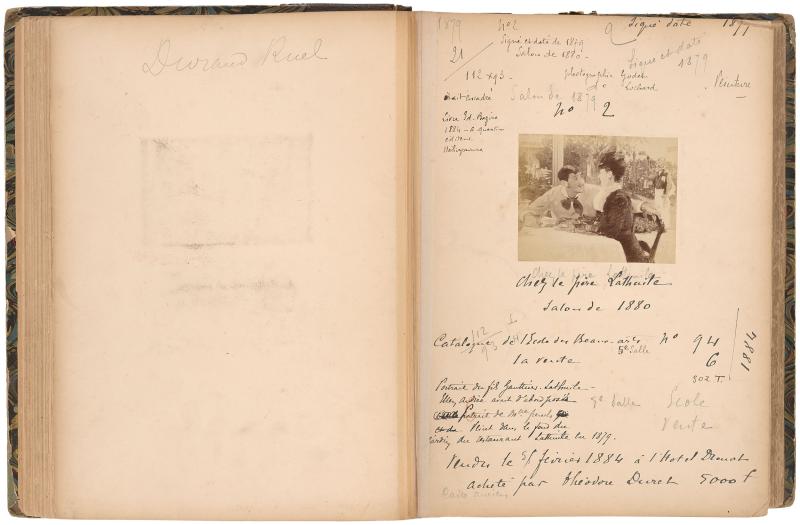 Durand Ruel
1879
21
no 2
Signé et daté de 1879
Salon de 1880.
Signé daté 1879
Signé et daté
1879
112 x 93 -
photographie Godet
do Lochard
Peinture
Salon de 1879
no 2
Livre Ed. Bazire
1884 - A Quantin
éditeur
Chez le père Lathuile
Chez le père Lathuile
Salon de 1880
112
93
Catalogue de l'Ecole des Beaux-arts no 94
5e Salle
la vente 6
1884
302 T.
Portrait du fils Gauthier-Lathuile -
Mlle Andrée avait d'abord posée
Portrait de
Peint dans le fond du
jardin du restaurant Lathuile en 1879.
5e Salle
Ecole
Vente
Vendu le 5/ février 1884 à l'Hotel Drouot
acheté par Théodore Duret 5000 f